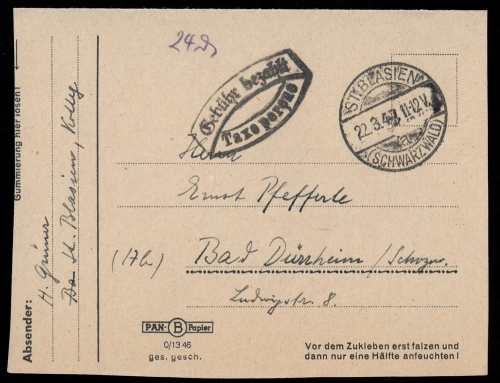 24 Pf
Gebühr bezahlt
Taxe perçue
ST. BLASIEN
22.3.47.11-12V.
a
(SCHWARZWALD)
Herrn
Ernst Pfefferle
(17b) Bad Dürrheim / Schwzw.
Ludwigstr. 8.
PAN- B Papier
0/13 46
ges. gesch.
Vor dem Zukleben erst falzen und
dann nur eine Hälfte anfeuchten!
Gummierung hier lösen!
Absender:
H. Grüner
St. Blasien, Kolleg